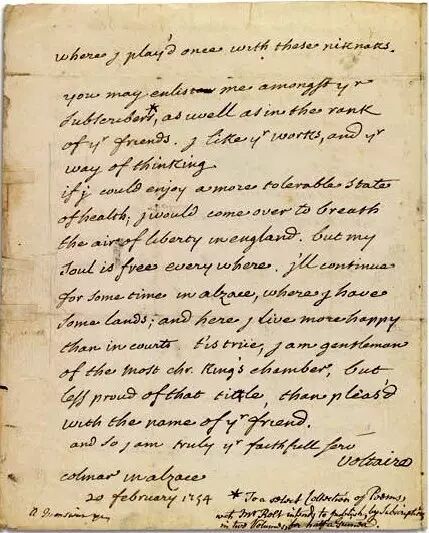 where j play'd once with these niknaks.
you may enlist me amongst yr
subscribers*, as well as in the rank
of yr friends. j like yr works, and yr
way of thinking
if j could enjoy a more tolerable state
of health, j would come over to breath
the air of liberty in england. but my
soul is free every where. j'll continue
for some time in alzace, where j have
some lands; and here j live more happy
than in courts. t'is true, j am gentleman
of the most chr. King's chamber, but
less proud of that tittle, than pleas'd
with the name of yr friend.
and so j am truly yr faithfull serv
Voltaire
colmar in alzace
20 february 1754
* To a select Collection of Poems,
wch Mr Rolt intends to publish, by Subscription
in two Volumes, for half a Guinea.
A Monsieur